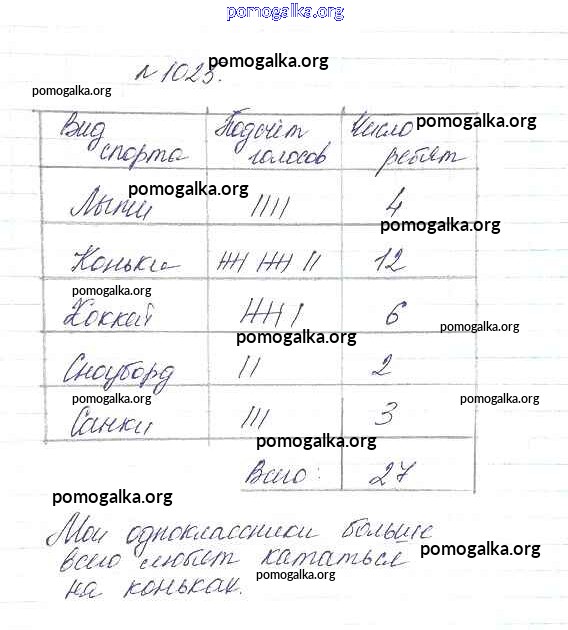 pomogalka.org
№ 1023. pomogalka.org
pomogalka.org
Вид спорта Подсчёт голосов Число ребят
pomogalka.org
pomogalka.org
Лыжи |||| 4
pomogalka.org
Коньки 卌 卌 || 12
pomogalka.org
Хоккей 卌 | 6
pomogalka.org
pomogalka.org
Сноуборд || 2
pomogalka.org pomogalka.org
Санки ||| 3
pomogalka.org
Всего: 27
pomogalka.org
Мои одноклассники больше
всего любят кататься
pomogalka.org
на коньках.
pomogalka.org